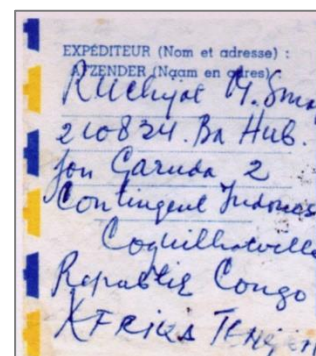 EXPÉDITEUR (Nom et adresse) :
AFZENDER (Naam en adres)
M. Sma
210834. Ba Hub.
Jon Garuda 2
Contingent Indones
Coquilhatville
Republik Congo
AFRIKA TENGAH